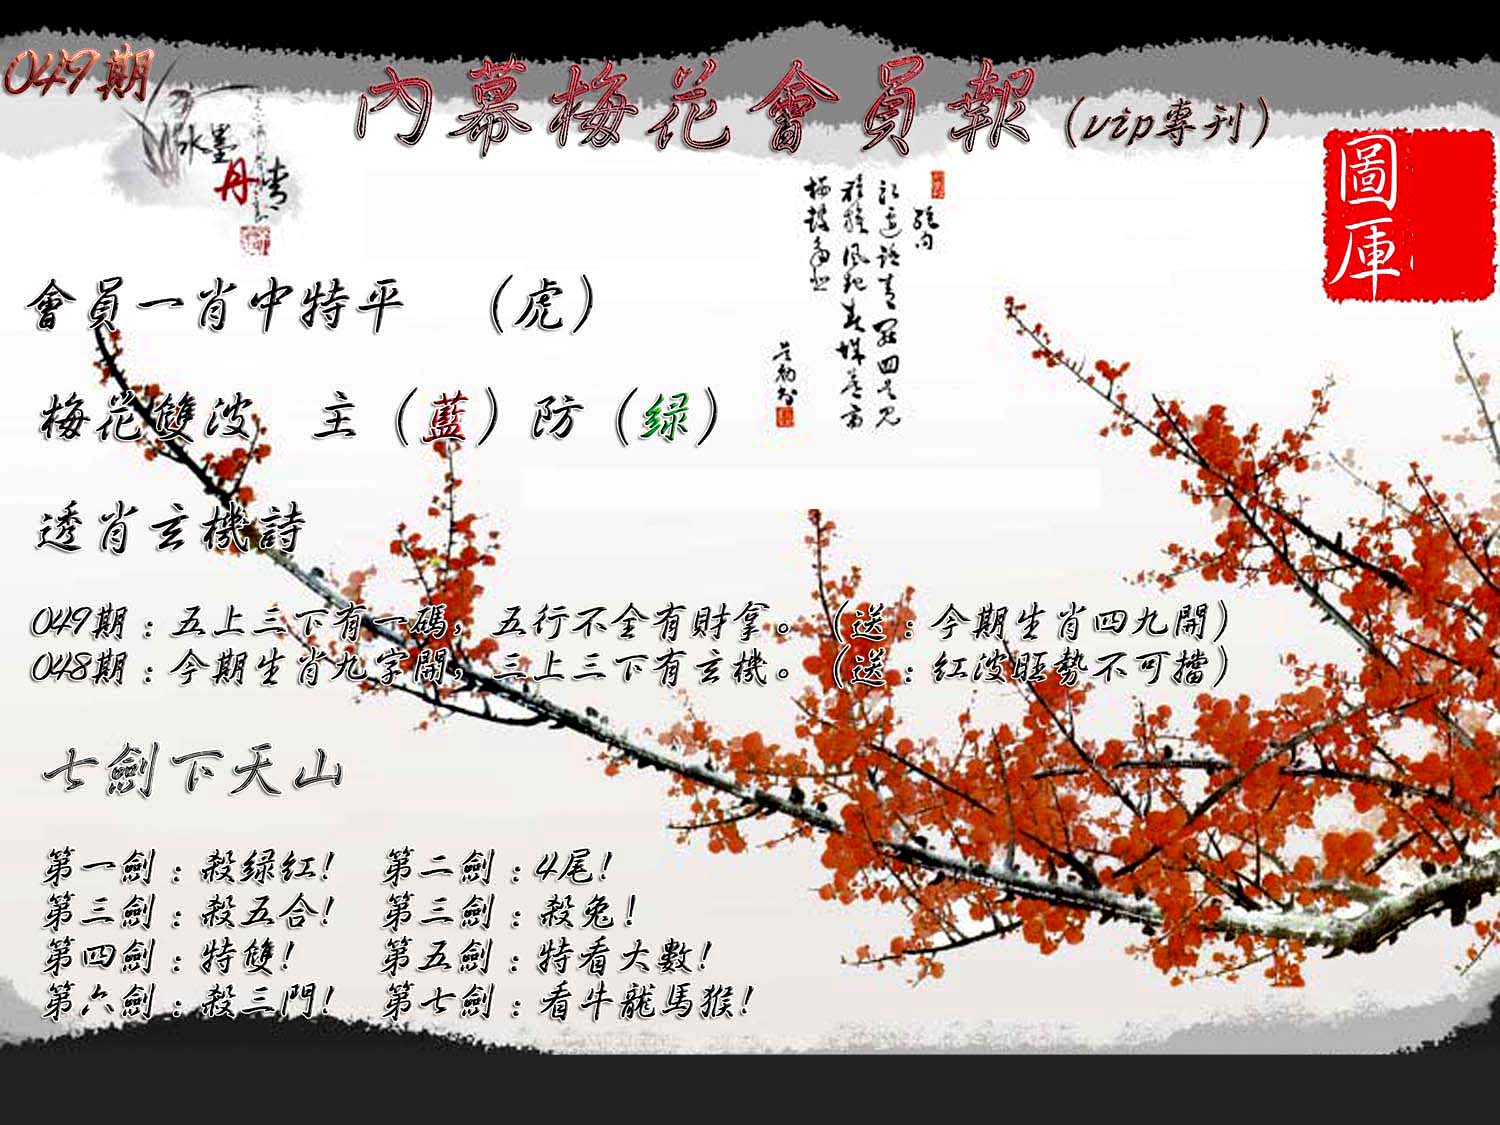 049期
內幕梅花會員報（vip專刊）
水墨
丹青
圖
庫
會員一肖中特平　（虎）
梅花雙波　主（藍）防（绿）
透肖玄機詩
049期：五上三下有一碼，五行不全有財拿。（送：今期生肖四九開）
048期：今期生肖九字開，三上三下有玄機。（送：紅波旺勢不可擋）
七劍下天山
第一劍：殺绿紅！　第二劍：4尾！
第三劍：殺五合！　第三劍：殺兔！
第四劍：特雙！　第五劍：特看大數！
第六劍：殺三門！　第七劍：看牛龍馬猴！